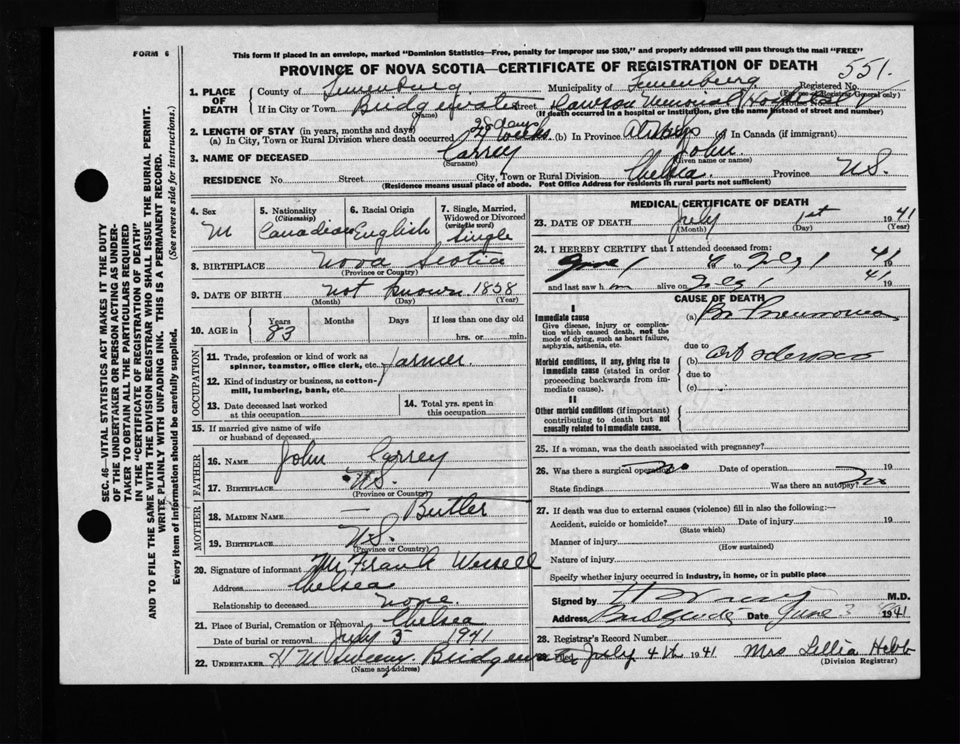 FORM 6
This form if placed in an envelope, marked "Dominion Statistics—Free, penalty for improper use $300," and properly addressed will pass through the mail "FREE"
PROVINCE OF NOVA SCOTIA—CERTIFICATE OF REGISTRATION OF DEATH
551.
1. PLACE OF DEATH
County of Lunenburg Municipality of Lunenburg Registered No.
(For use of Registrar General only)
If in City or Town Bridgewater Street Dawson Memorial Hospital
(Name) (If death occurred in a hospital or institution, give the name instead of street and number)
2. LENGTH OF STAY (in years, months and days)
(a) In City, Town or Rural Division where death occurred 28 days (b) In Province Always (c) In Canada (if immigrant)
3. NAME OF DECEASED Correy John
(Surname) (Given name or names)
RESIDENCE No. Street City, Town or Rural Division Chelsea Province NS.
(Residence means usual place of abode. Post Office Address for residents in rural parts not sufficient)
4. Sex M
5. Nationality (Citizenship) Canadian
6. Racial Origin English
7. Single, Married, Widowed or Divorced (write the word) Single
8. BIRTHPLACE Nova Scotia
(Province or Country)
9. DATE OF BIRTH not known 1858
(Month) (Day) (Year)
10. AGE in Years 83 Months Days If less than one day old
hrs. or min.
OCCUPATION
11. Trade, profession or kind of work as spinner, teamster, office clerk, etc. Farmer
12. Kind of industry or business, as cotton-mill, lumbering, bank, etc.
13. Date deceased last worked at this occupation
14. Total yrs. spent in this occupation
15. If married give name of wife or husband of deceased
FATHER
16. NAME John Correy
17. BIRTHPLACE NS.
(Province or Country)
MOTHER
18. MAIDEN NAME — Butler
19. BIRTHPLACE NS.
(Province or Country)
20. Signature of informant Mr Frank
Address Chelsea
Relationship to deceased None.
21. Place of Burial, Cremation or Removal Chelsea
Date of burial or removal July 5 1941
22. UNDERTAKER H M Bridgewater
(Name and address)
MEDICAL CERTIFICATE OF DEATH
23. DATE OF DEATH July 1st 1941
(Month) (Day) (Year)
24. I HEREBY CERTIFY that I attended deceased from:
June 1 to July 1 1941
and last saw him alive on July 1 1941
CAUSE OF DEATH
I
Immediate cause
Give disease, injury or complication which caused death, not the mode of dying, such as heart failure, asphyxia, asthenia, etc.
(a) Br Pneumonia
due to
Morbid conditions, if any, giving rise to immediate cause (stated in order proceeding backwards from immediate cause).
(b)
due to
(c)
II
Other morbid conditions (if important) contributing to death but not causally related to immediate cause.
25. If a woman, was the death associated with pregnancy?
26. Was there a surgical operation? no Date of operation 19
State findings Was there an autopsy? no
27. If death was due to external causes (violence) fill in also the following:—
Accident, suicide or homicide? Date of injury 19
(State which)
Manner of injury
(How sustained)
Nature of injury
Specify whether injury occurred in industry, in home, or in public place
Signed by M.D.
Address Bridgewater Date June 3 1941
28. Registrar's Record Number
Filed July 4th 1941 Mrs Lillia Hebb
(Division Registrar)
SEC. 46—VITAL STATISTICS ACT MAKES IT THE DUTY
OF THE UNDERTAKER OR PERSON ACTING AS UNDER-
TAKER TO OBTAIN ALL THE PARTICULARS REQUIRED
IN THE "CERTIFICATE OF REGISTRATION OF DEATH"
AND TO FILE THE SAME WITH THE DIVISION REGISTRAR WHO SHALL ISSUE THE BURIAL PERMIT.
WRITE PLAINLY WITH UNFADING INK. THIS IS A PERMANENT RECORD.
Every item of information should be carefully supplied. (See reverse side for instructions.)